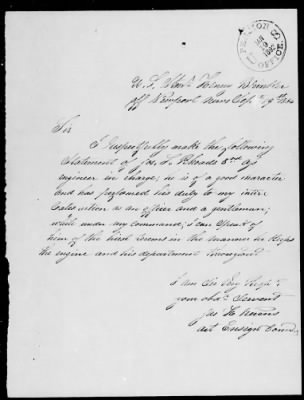 PENSION OFFICE
JAN
19
1887
U.S. Str. Henry Brinker
off Newport News
Sir
I respectfully make the following
statement of Jos. S. Rhoads 3rd as
engineer in charge; he is of a good character
and has performed his duty to my entire
satisfaction as an officer and a gentleman;
while under my command; I can speak of
him of the kind terms in the manner he keeps
the engine and his department throughout
I am Sir Very Resp.
your obdt. Servant
Jas H
act Ensign Comdg